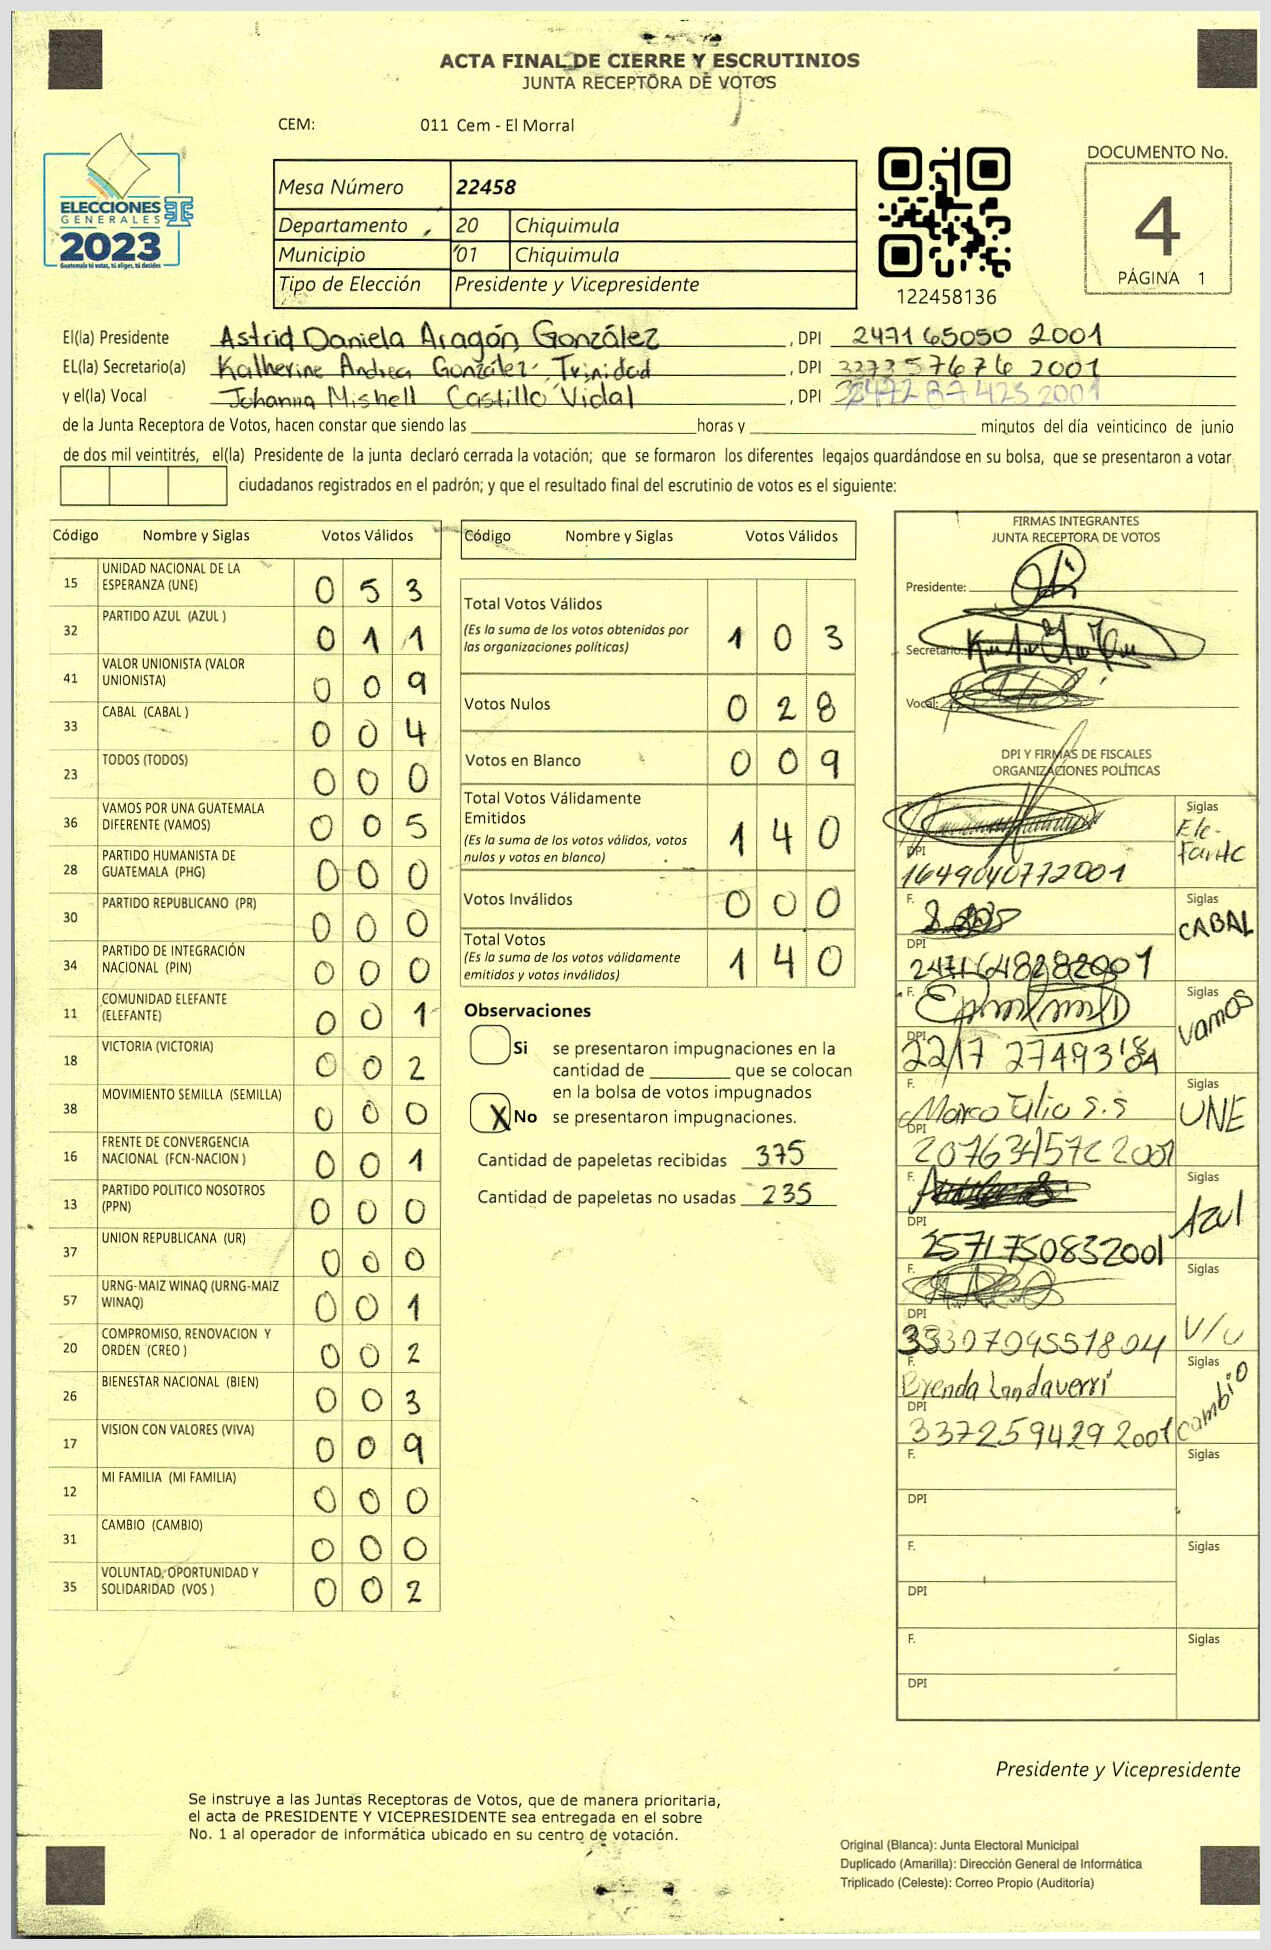 ACTA FINAL DE CIERRE Y ESCRUTINIOS
JUNTA RECEPTORA DE VOTOS
CEM: 011 Cem - El Morral
ELECCIONES
GENERALES
2023
Guatemala tú votas, tú eliges, tú decides
Mesa Número 22458
Departamento 20 Chiquimula
Municipio 01 Chiquimula
Tipo de Elección Presidente y Vicepresidente
122458136
DOCUMENTO No.
4
PÁGINA 1
El(la) Presidente Astrid Daniela Aragón González , DPI 247165050 2001
EL(la) Secretario(a) Katherine Andrea González Trinidad , DPI 337357676 2001
y el(la) Vocal Johanna Mishell Castillo Vidal , DPI
de la Junta Receptora de Votos, hacen constar que siendo las horas y minutos del día veinticinco de junio
de dos mil veintitrés, el(la) Presidente de la junta declaró cerrada la votación; que se formaron los diferentes legajos guardándose en su bolsa, que se presentaron a votar
ciudadanos registrados en el padrón; y que el resultado final del escrutinio de votos es el siguiente:
Código Nombre y Siglas Votos Válidos
15 UNIDAD NACIONAL DE LA ESPERANZA (UNE) 0 5 3
32 PARTIDO AZUL (AZUL ) 0 1 1
41 VALOR UNIONISTA (VALOR UNIONISTA) 0 0 9
33 CABAL (CABAL ) 0 0 4
23 TODOS (TODOS) 0 0 0
36 VAMOS POR UNA GUATEMALA DIFERENTE (VAMOS) 0 0 5
28 PARTIDO HUMANISTA DE GUATEMALA (PHG) 0 0 0
30 PARTIDO REPUBLICANO (PR) 0 0 0
34 PARTIDO DE INTEGRACIÓN NACIONAL (PIN) 0 0 0
11 COMUNIDAD ELEFANTE (ELEFANTE) 0 0 1
18 VICTORIA (VICTORIA) 0 0 2
38 MOVIMIENTO SEMILLA (SEMILLA) 0 0 0
16 FRENTE DE CONVERGENCIA NACIONAL (FCN-NACION ) 0 0 1
13 PARTIDO POLITICO NOSOTROS (PPN) 0 0 0
37 UNION REPUBLICANA (UR) 0 0 0
57 URNG-MAIZ WINAQ (URNG-MAIZ WINAQ) 0 0 1
20 COMPROMISO, RENOVACION Y ORDEN (CREO ) 0 0 2
26 BIENESTAR NACIONAL (BIEN) 0 0 3
17 VISION CON VALORES (VIVA) 0 0 9
12 MI FAMILIA (MI FAMILIA) 0 0 0
31 CAMBIO (CAMBIO) 0 0 0
35 VOLUNTAD, OPORTUNIDAD Y SOLIDARIDAD (VOS ) 0 0 2
Código Nombre y Siglas Votos Válidos
Total Votos Válidos 1 0 3
(Es la suma de los votos obtenidos por
las organizaciones políticas)
Votos Nulos 0 2 8
Votos en Blanco 0 0 9
Total Votos Válidamente
Emitidos 1 4 0
(Es la suma de los votos válidos, votos
nulos y votos en blanco)
Votos Inválidos 0 0 0
Total Votos 1 4 0
(Es la suma de los votos válidamente
emitidos y votos inválidos)
Observaciones
Si se presentaron impugnaciones en la
cantidad de que se colocan
en la bolsa de votos impugnados
X No se presentaron impugnaciones.
Cantidad de papeletas recibidas 375
Cantidad de papeletas no usadas 235
FIRMAS INTEGRANTES
JUNTA RECEPTORA DE VOTOS
Presidente:
Secretario:
Vocal:
DPI Y FIRMAS DE FISCALES
ORGANIZACIONES POLÍTICAS
F. Siglas Elefante
DPI 1649040772001
F. Siglas CABAL
DPI 2471648282001
F. Siglas Vamos
DPI
F. Marco Tilio S.S Siglas UNE
DPI
F. Siglas Azul
DPI 2571750832001
F. Siglas V/U
DPI 3330709551804
F. Brenda Landaverri Siglas Cambio
DPI 337259429 2001
F. Siglas
DPI
F. Siglas
DPI
F. Siglas
DPI
Presidente y Vicepresidente
Se instruye a las Juntas Receptoras de Votos, que de manera prioritaria,
el acta de PRESIDENTE Y VICEPRESIDENTE sea entregada en el sobre
No. 1 al operador de informática ubicado en su centro de votación.
Original (Blanca): Junta Electoral Municipal
Duplicado (Amarilla): Dirección General de Informática
Triplicado (Celeste): Correo Propio (Auditoría)